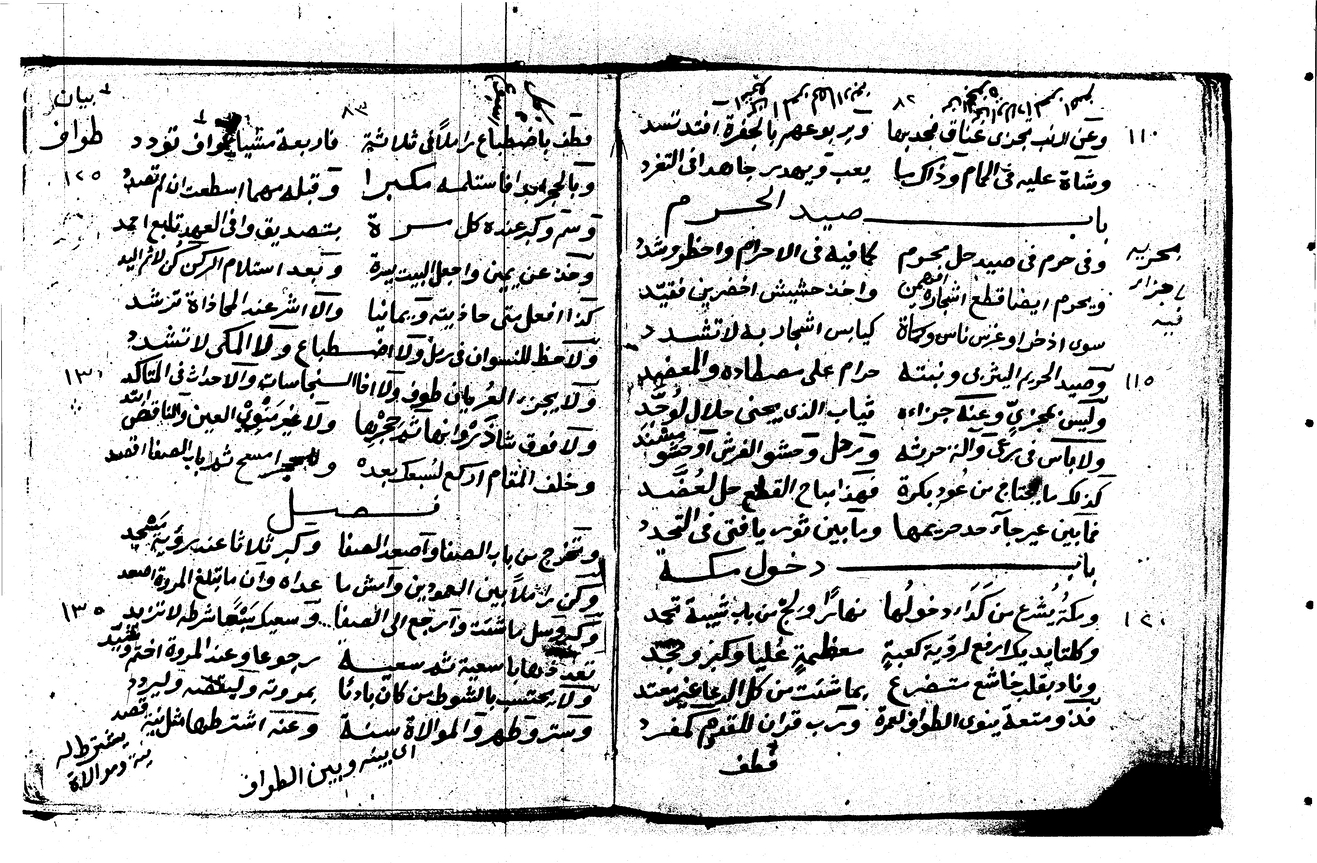 ٨٢
١١٠ وعن الارنب فجدى عناق فجد بها ويربوعهم بالجفرة افتد تسد
وشاة عليه فى الحمام وذاك ما يعب ويهدر جاهدا فى التغرد
باب صيد الحرم
وفى حرم فى صيد حل بحرم كما فيه فى الاحرام واحظر وشدد
ويحرم ايضا قطع اشجاره واخذ حشيش اخضرين فقيد
سوى اذخر او غرس ناس وكماة كيابس اشجار به لا تشدد
١١٥ وصيد الحريم اليثربى ونبته حرام على مصطاده والمعضد
وليس بمجزى وعنه جزاءه ثياب الذى يجنى حلال لوجد
ولا باس فى مرعى وآلة حرثه ورحل وحشو الفرش او حشو مسند
كذلك ما يحتاج من عود بكرة فهذا مباح القطع حل لعضد
فما بين عير جاء حد حريمها وما بين ثور يا فتى فى التحدد
باب دخول مكة
١٢٠ ومكة يشرع من كداء دخولها نهارا ولج من باب شيبة تحد
وكلتا يديك ارفع لرؤية كعبة معظمة عليا وكبر ومجد
وناد بقلب خاشع متضرع بما شئت من كل الدعا غير معتد
فذو متعة ينوى الطواف لعمرة ورب قران للقدوم كمفرد
فطف
٨٣
بيان
طواف
فطف باضطباع راملا فى ثلاثة واربعة مشيا طواف تودد
١٢٥ وبالحجر ابدا فاستلمه مكبرا وقبله مهما اسطعت ان لم تصد
وسم وكبر عنده كل مرة بتصديق وافى العهد تابع احمد
وخذ عن يمين واجعل البيت يسرة وبعد استلام الركن كن لاثر اليد
كذا افعل متى حاذيته ويمانيا والا اشر عند المحاذاة ترشد
ولا حظ للنسوان فى رمل ولا اضطباع ولا المكى لا تتشدد
١٣٠ ولا يجزئ العريان طوف ولا اخا النجاسات والاحداث فى المتاكد
ولا فوق شاذروانها ثم حجرها ولا غير منوى العين والناقص
وخلف المقام اركع لسبعك بعده وللحجر امسح ثم باب الصفا اقصد
فصل
وتخرج من باب الصفا واصعد الصفا وكبر ثلاثا عند رؤية مسجد
وكن راملا بين العمودين وامش ما عداه وان ما تبلغ المروة اصعد
١٣٥ وكبر وسل ما شئت وارجع الى الصفا وسعيك سبعا شرطه لا تزيد
تعد ذهابا سعية ثم سعية رجوعا وعند المروة اختم وتقتيد
ولا يحتسب بالشوط من كان بادئا بمروته وليقضه وليردد
وستر وطهر والموالاة سنة وعنه اشترطها مثل نية قصد
اى بينه وبين الطواف
يشترط له
نية وموالاة